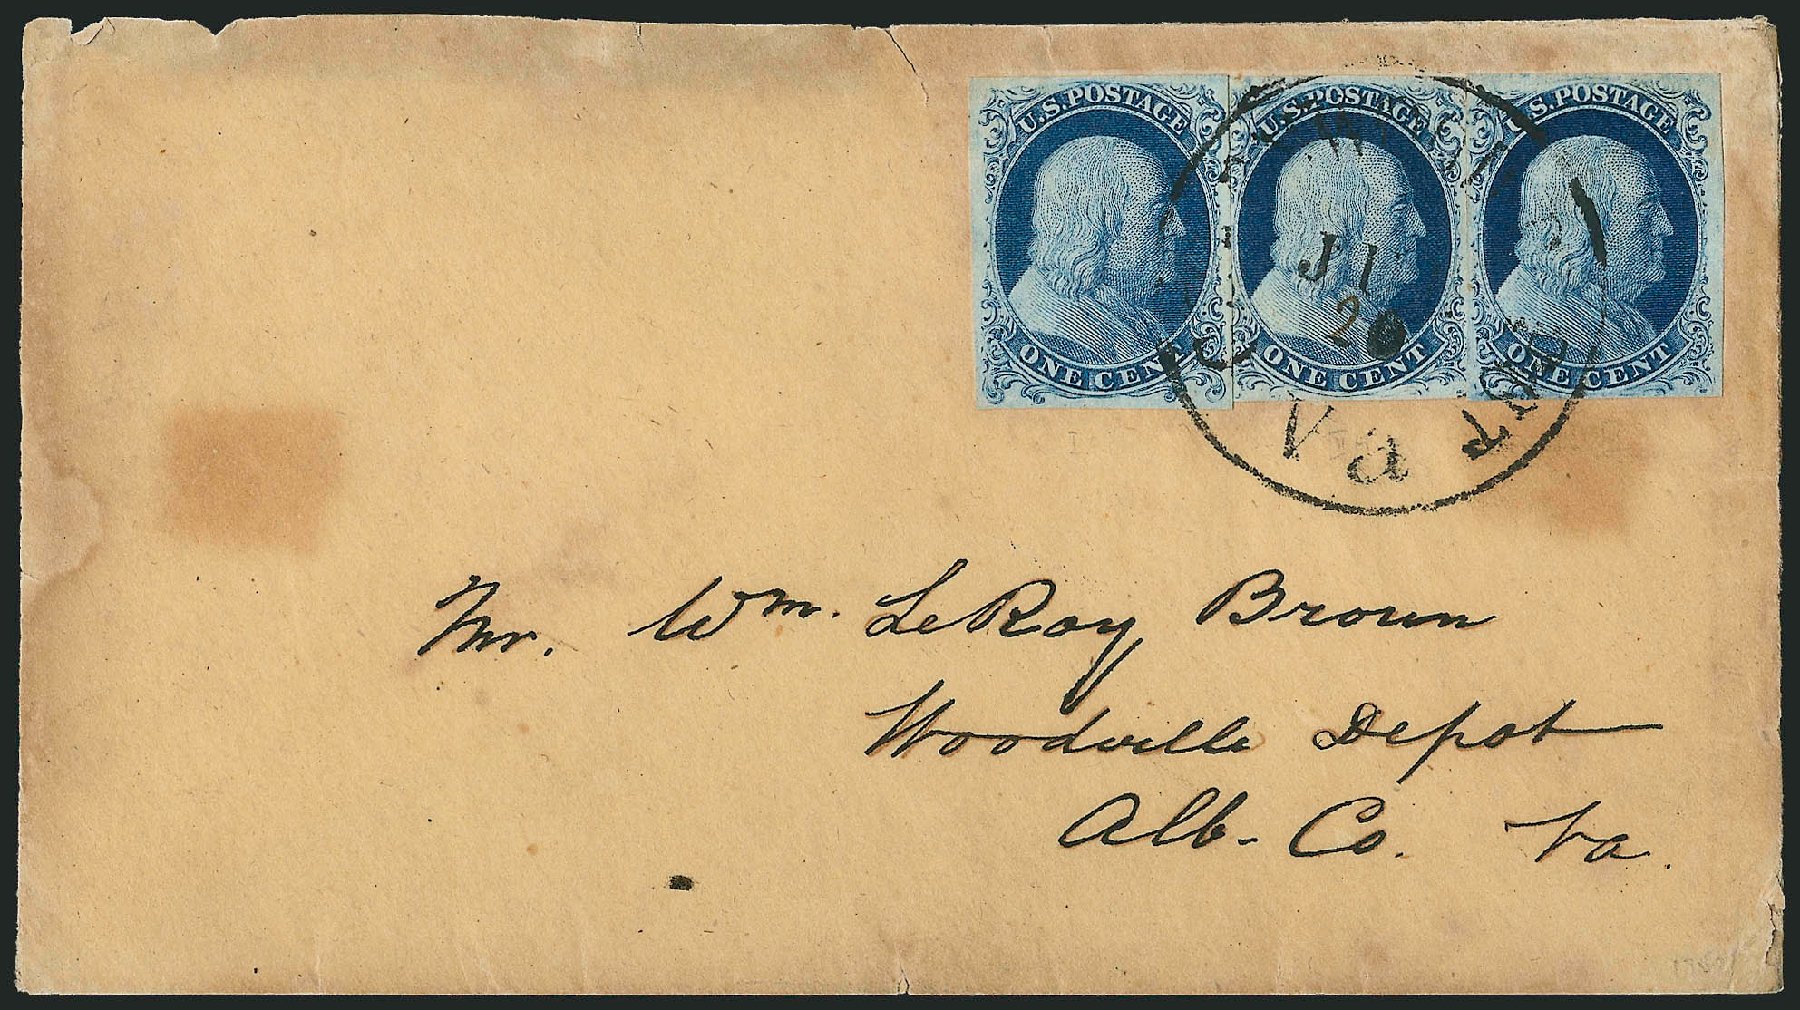 U.S. POSTAGE U.S. POSTAGE U.S. POSTAGE
ONE CENT ONE CENT ONE CENT
Mr. Wm. LeRoy Brown
Woodville Depot
Alb. Co. Va.